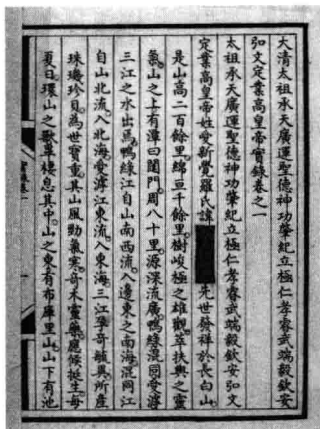 大清太祖承天廣運聖德神功肇紀立極仁孝睿武端毅欽安
弘文定業高皇帝實錄卷之一
太祖承天廣運聖德神功肇紀立極仁孝睿武端毅欽安弘文
定業高皇帝姓愛新覺羅氏諱 先世發祥於長白山
是山高二百餘里綿亘千餘里樹峻極之雄觀萃扶輿之靈
氣山之上有潭曰闥門周八十里源深流廣鴨綠混同愛滹
三江之水出焉鴨綠江自山南西流入遼東之南海混同江
自山北流入北海愛滹江東流入東海三江孕奇毓異所產
珠璣珍貝為世寶重其山風勁氣寒奇木靈藥應候挺生每
夏日環山之獸畢棲息其中山之東有布庫里山山下有池